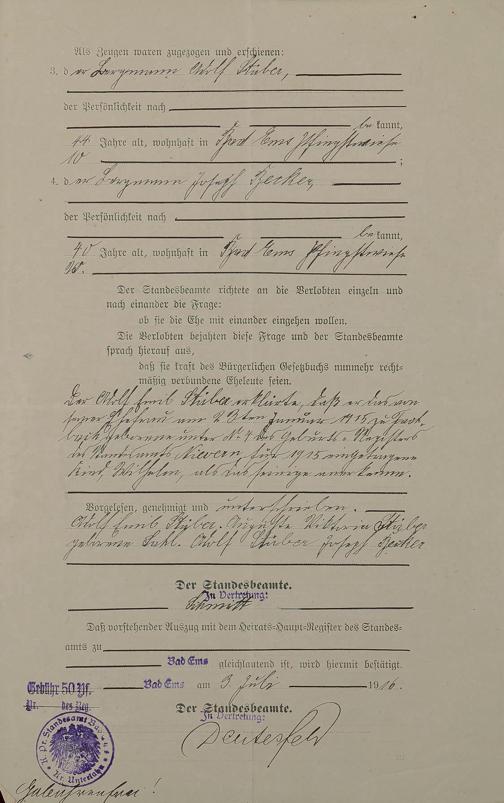 Als Zeugen waren zugezogen und erschienen:
3. d er Bergmann Adolf Stuber,
der Persönlichkeit nach
be kannt,
44 Jahre alt, wohnhaft in Bad Ems Pfingstwiese
10 ;
4. d er Bergmann Joseph Becker,
der Persönlichkeit nach
be kannt,
40 Jahre alt, wohnhaft in Bad Ems Pfingstwiese
Der Standesbeamte richtete an die Verlobten einzeln und
nach einander die Frage:
ob sie die Ehe mit einander eingehen wollen.
Die Verlobten bejahten diese Frage und der Standesbeamte
sprach hierauf aus,
daß sie kraft des Bürgerlichen Gesetzbuchs nunmehr recht-
mäßig verbundene Eheleute seien.
Der Adolf Emil Stuber erklärte, daß er das von
seiner Ehefrau am 23ten Januar 1915 zu
geborene unter Nr. 4 des Geburts-Registers
des Standesamts Nievern für 1915 eingetragene
Kind, Wilhelm, als das seinige anerkenne.
Vorgelesen, genehmigt und unterschrieben.
Adolf Emil Stuber. Auguste Viktoria Stuber
geborene Adolf Stuber Joseph Becker
Der Standesbeamte.
In Vertretung:
Schmitt
Daß vorstehender Auszug mit dem Heirats-Haupt-Register des Standes-
amts zu
Bad Ems gleichlautend ist, wird hiermit bestätigt.
Gebühr 50 Pf.
Nr. des Reg.
Bad Ems am 3 Juli 1916.
Der Standesbeamte.
In Vertretung:
K. Pr. Standesamt Bad Ems
Kr. Unterlahn
Gebührenfrei!